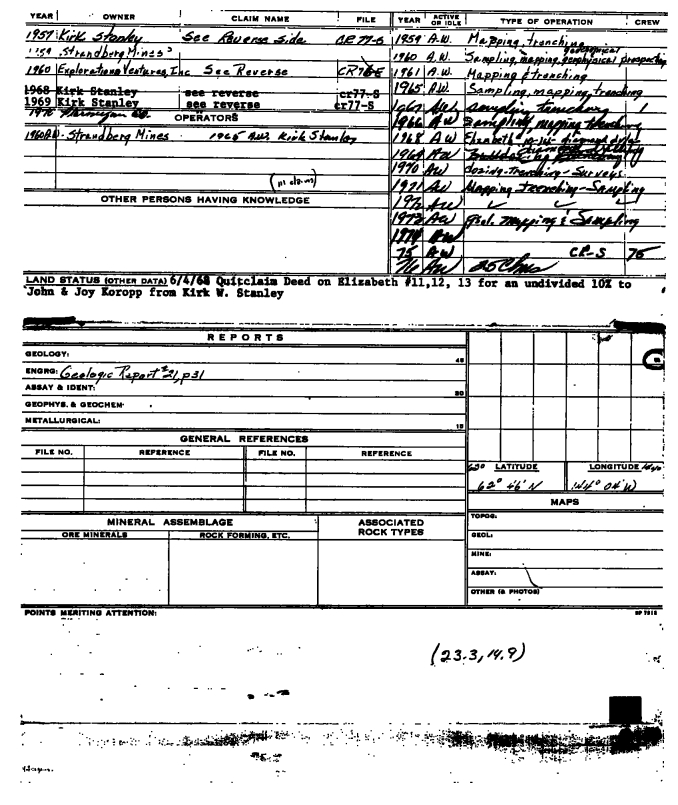 YEAR OWNER CLAIM NAME FILE
1957 Kirk Stanley See Reverse Side
1959 Strandberg Mines
1960 Explorations Ventures, Inc See Reverse
1968 Kirk Stanley see reverse cr77-S
1969 Kirk Stanley see reverse cr77-S
OPERATORS
1960 AW - Strandberg Mines 1965 A.W. Kirk Stanley
(111 claims)
OTHER PERSONS HAVING KNOWLEDGE
YEAR ACTIVE OR IDLE TYPE OF OPERATION CREW
1959 A.W. Mapping, trenching
1960 A.W. Sampling, mapping, geophysical prospecting
1961 A.W. Mapping & trenching
1965 A.W. Sampling, mapping, trenching
1967 AW Sampling trenching 1
1966 AW Sampling, mapping trenching
1968 AW Elizabeth
1969 AW
1970 AW dozing-Trenching-Surveys
1971 AW Mapping Trenching-Sampling
1972 AW ✓ ✓ ✓
1973 AW Geol. Mapping & Sampling
1974 AW
75 AW CR-S 75
76 AW 25 Clms
LAND STATUS (OTHER DATA) 6/4/68 Quitclaim Deed on Elizabeth #11,12, 13 for an undivided 10% to
John & Joy Koropp from Kirk W. Stanley
REPORTS
GEOLOGY: 45
ENGRG: Geologic Report #21, p31
ASSAY & IDENT: 30
GEOPHYS. & GEOCHEM.
METALLURGICAL: 15
GENERAL REFERENCES
FILE NO. REFERENCE FILE NO. REFERENCE
LATITUDE LONGITUDE
62° 46' N 144° 04' W
MAPS
TOPOG.
GEOL:
MINE:
ASSAY:
OTHER (& PHOTOS)
MINERAL ASSEMBLAGE ASSOCIATED ROCK TYPES
ORE MINERALS ROCK FORMING, ETC.
POINTS MERITING ATTENTION:
(23.3, 14.9)